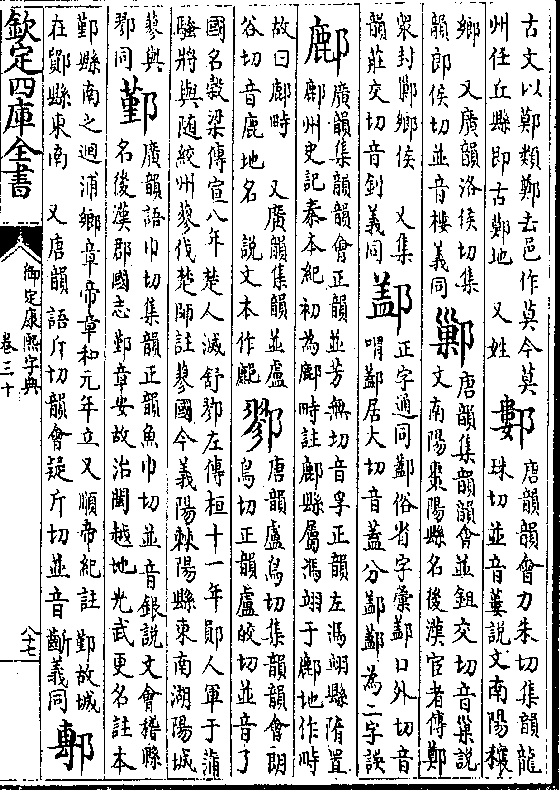 古文以鄭類鄭去邑作莫今莫
州任丘縣即古鄚地　又姓
鄻
唐韻韻會力朱切集韻龍
珠切並音蔞說文南陽穰
鄉　又廣韻洛侯切集
韻郎侯切並音樓義同
鄛
唐韻集韻韻會並鉏交切音巢說
文南陽棗陽縣名後漢宦者傳鄭
衆封鄛鄉侯　又集
韻莊交切音釗義同
鄐
正字通同鄯俗省字彙鄯口外切音
喟鄯居大切音蓋分鄯鄯為二字誤
鄜
廣韻集韻韻會正韻並芳無切音孚正韻左馮翊縣隋置
鄜州史記秦本紀初為鄜畤註鄜縣屬馮翊于鄜地作畤
故曰鄜畤　又廣韻集韻並盧
谷切音鹿地名　說文本作𨞻
鄝
唐韻盧鳥切集韻韻會朗
鳥切正韻盧皎切並音了
國名穀梁傳宣八年楚人滅舒鄝左傳桓十一年鄖人軍于蒲
騷將與隨絞州蓼伐楚師註蓼國今義陽棘陽縣東南湖陽城
蓼與
鄝同
鄞
廣韻語巾切集韻正韻魚巾切並音銀說文會稽縣
名後漢郡國志鄞章安故治閩越地光武更名註本
鄞縣南之迴浦鄉章帝章和元年立又順帝紀註　鄞故城
在鄮縣東南　又唐韻語斤切韻會疑斤切並音齗義同
鄟
欽定四庫全書
御定康熙字典
卷三十
八十七